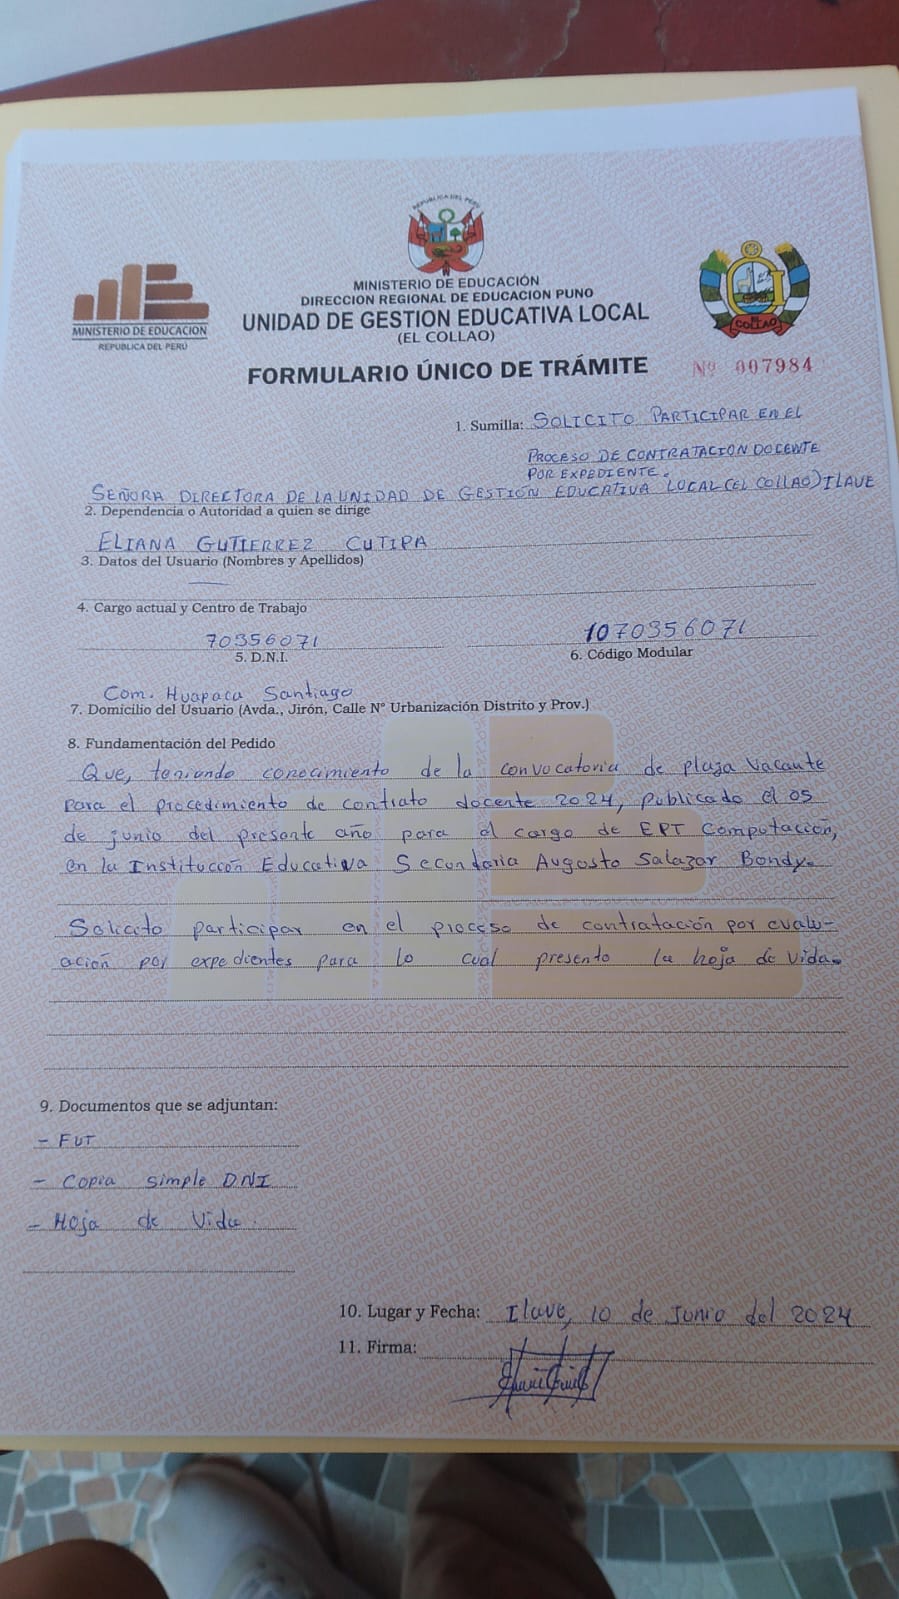 REPUBLICA DEL PERU
MINISTERIO DE EDUCACION
REPUBLICA DEL PERÚ
MINISTERIO DE EDUCACIÓN
DIRECCION REGIONAL DE EDUCACION PUNO
UNIDAD DE GESTION EDUCATIVA LOCAL
(EL COLLAO)
EL COLLAO
FORMULARIO ÚNICO DE TRÁMITE Nº 007984
1. Sumilla: SOLICITO PARTICIPAR EN EL
PROCESO DE CONTRATACION DOCENTE
POR EXPEDIENTE.
SEÑORA DIRECTORA DE LA UNIDAD DE GESTIÓN EDUCATIVA LOCAL (EL COLLAO) ILAVE
2. Dependencia o Autoridad a quien se dirige
ELIANA GUTIERREZ CUTIPA
3. Datos del Usuario (Nombres y Apellidos)
4. Cargo actual y Centro de Trabajo
70356071 1070356071
5. D.N.I. 6. Código Modular
Com. Huapaca Santiago
7. Domicilio del Usuario (Avda., Jirón, Calle Nº Urbanización Distrito y Prov.)
8. Fundamentación del Pedido
Que, teniendo conocimiento de la convocatoria de plaza vacante
para el procedimiento de contrato docente 2024, publicado el 05
de junio del presente año para el cargo de EPT Computación,
en la Institucción Educativa Secundaria Augusto Salazar Bondy.
Solicito participar en el proceso de contratación por evalu-
ación por expedientes para lo cual presento la hoja de vida.
9. Documentos que se adjuntan:
- FUT
- Copia simple DNI
- Hoja de Vida.
10. Lugar y Fecha: Ilave, 10 de Junio del 2024
11. Firma: